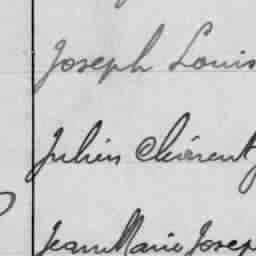 Joseph Louis
Julien Clément
Jean Marie Josep